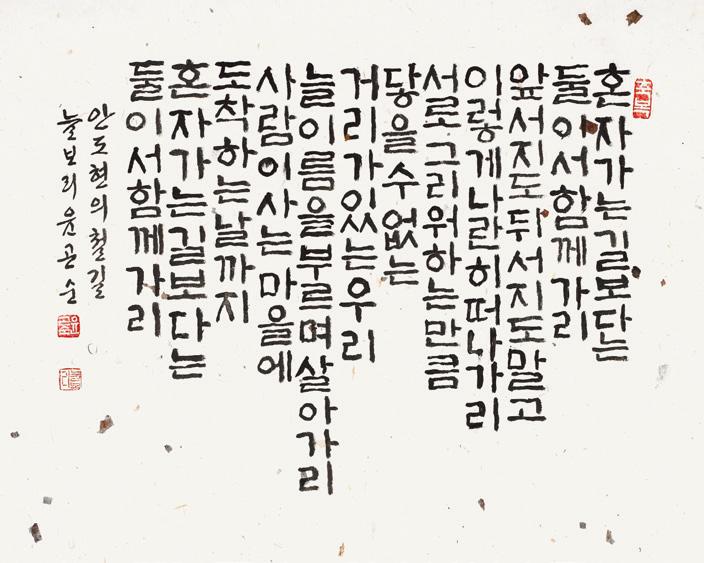 혼자가는길보다는
둘이서함께가리
앞서지도뒤서지도말고
이렇게나란히떠나가리
서로그리워하는만큼
닿을수없는
거리가있는우리
늘이름을부르며살아가리
사람이사는마을에
도착하는날까지
혼자가는길보다는
둘이서함께가리
안도현의철길
늘보리윤곤순